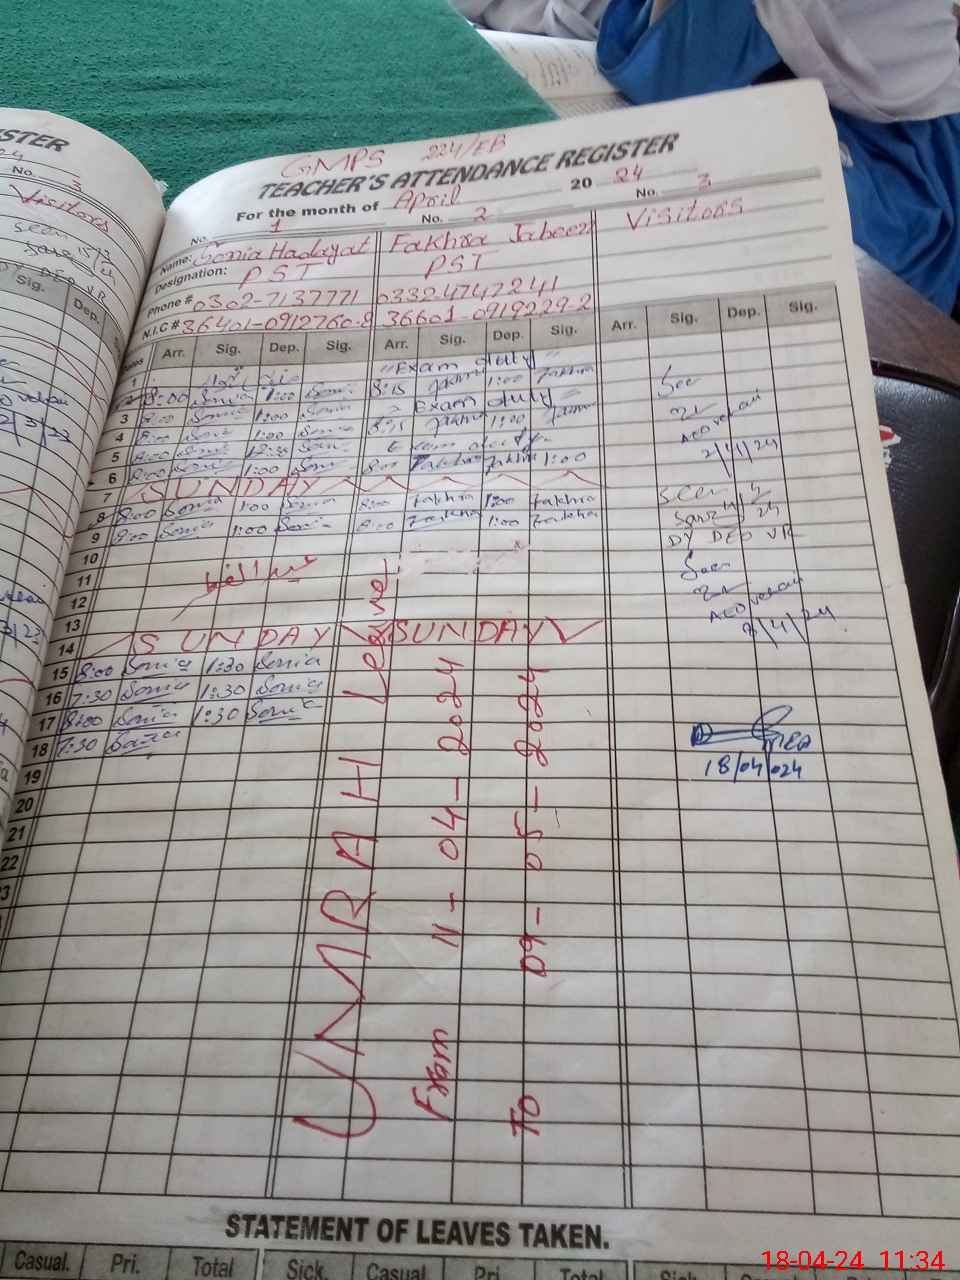 GMPS 224/EB
TEACHER'S ATTENDANCE REGISTER
For the month of April 2024
No. 1 No. 2 No. 3
Name: Sonia Hadayat Fakhra Jabeez Visitors
Designation: PST PST
Phone # 0302-7137771 0332-4747241
N.I.C # 36401-0912760-8 36601-0919229-2
Arr. Sig. Dep. Sig. Arr. Sig. Dep. Sig. Arr. Sig. Dep. Sig.
1 "Exam duty"
2 8:00 Sonia 1:00 Sonia 8:15 Fakhra 1:00 Fakhra
3 8:00 Sonia 1:00 Sonia Exam duty
4 8:00 Sonia 1:00 Sonia 8:15 Fakhra 1:00
5 8:00 Sonia 12:30 Exam duty
6 8:00 Sonia 1:00 Sonia 8:00 Fakhra Fakhra 1:00
7 SUNDAY
8 8:00 Sonia 1:00 Sonia 8:00 Fakhra 1:00 Fakhra
9 8:00 Sonia 1:00 Sonia 8:00 Fakhra 1:00 Fakhra
10
11 عید الفطر
12
13
14 SUNDAY SUNDAY
15 8:00 Sonia 1:30 Sonia
16 7:30 Sonia 1:30 Sonia
17 8:00 Sonia 1:30 Sonia
18 7:30 Sonia
19
20
21
22
23
UMRAH Leave
From 11-04-2024
To 09-05-2024
Seen
2/4/24
Seen
DY DEO VR
Seen
8/4/24
18/04/024
STATEMENT OF LEAVES TAKEN.
Casual. Pri. Total Sick. Casual Pri. Total Sick. Casual
STER
No. 3
Visitors
Seen 15/3
Sig. Dep.
18-04-24 11:34